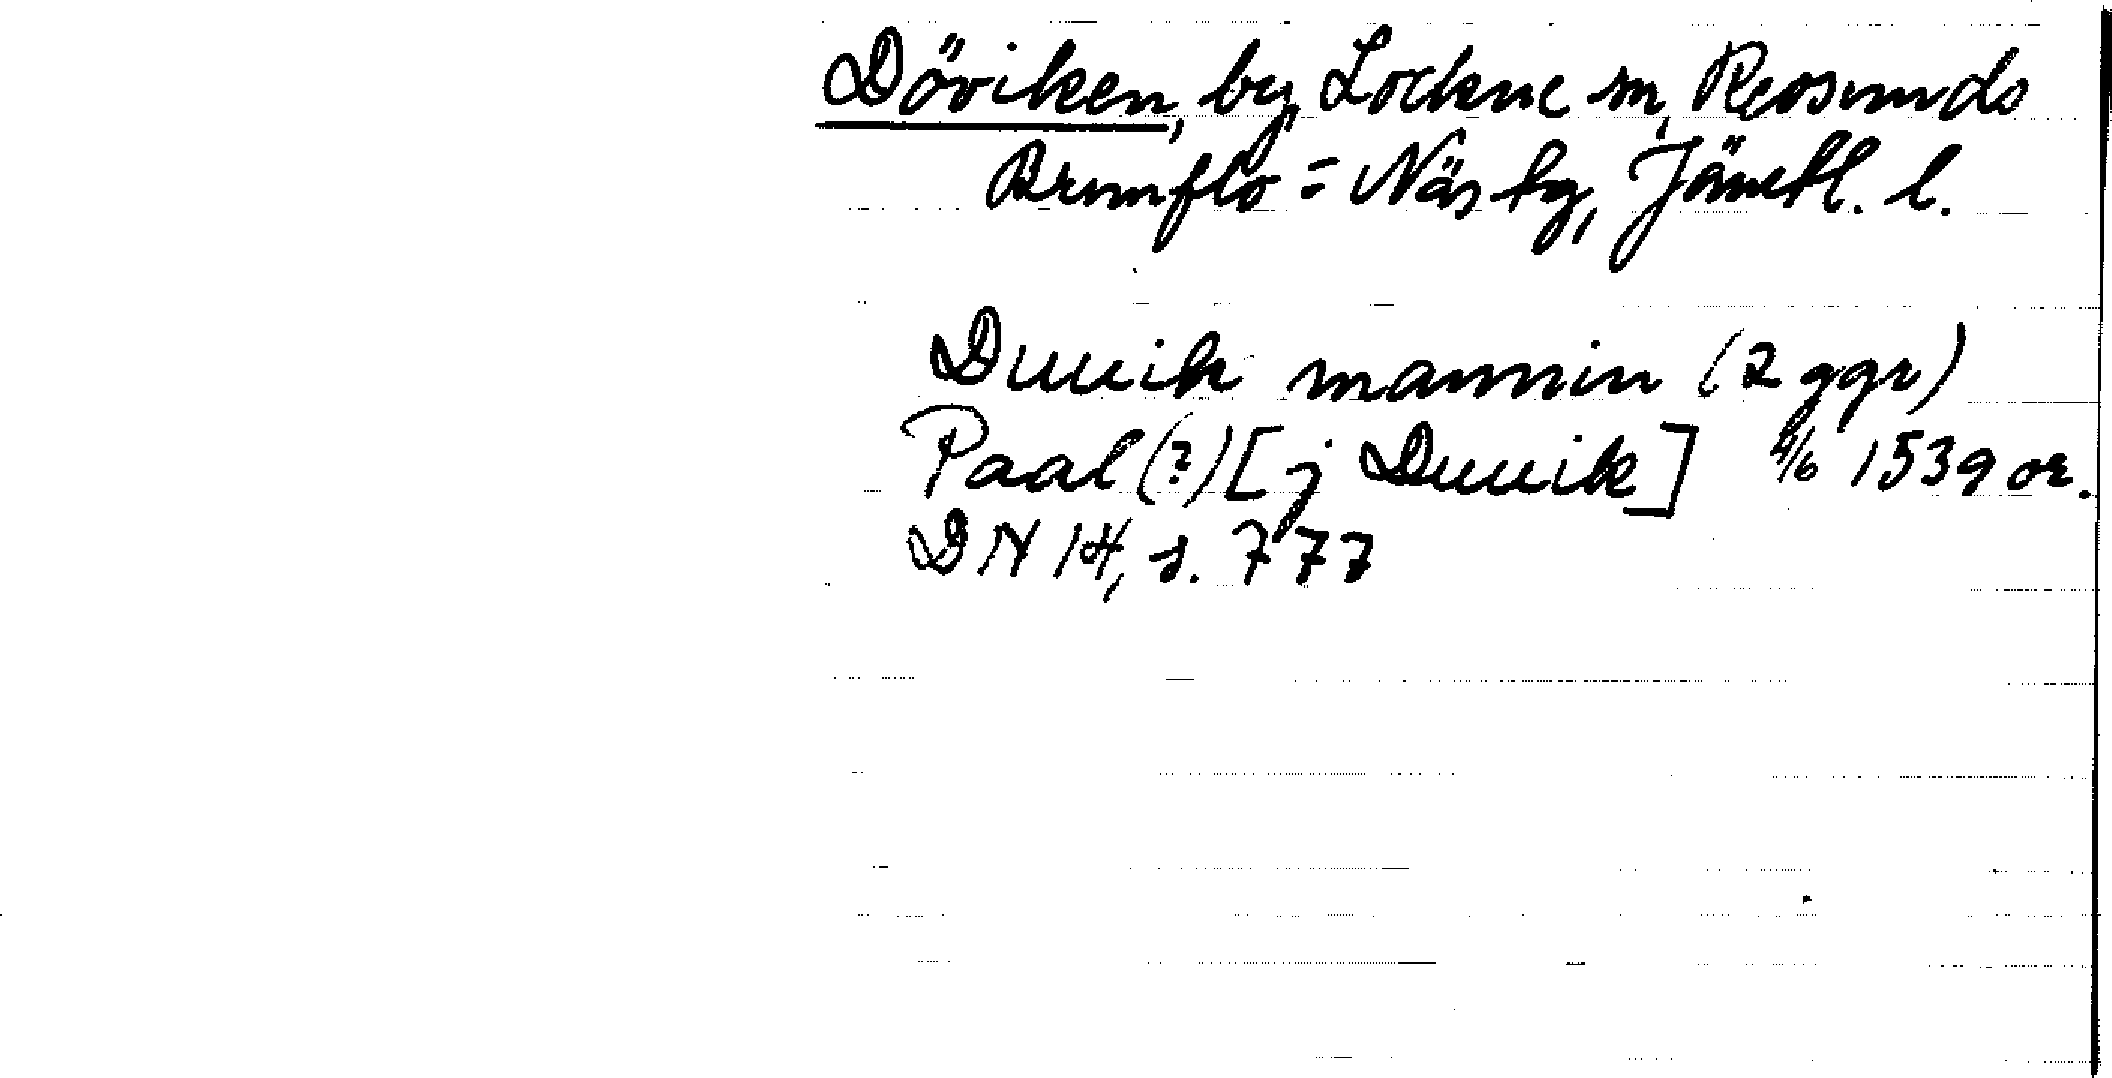 Döviken, by, Lockne sn, Revsunds
Brunflo = Näs tg, Jämtl. l.
Duuik mannin (2 ggr)
Paal (?) [j Duuik] 4/6 1539 or.
DN 14, s. 777